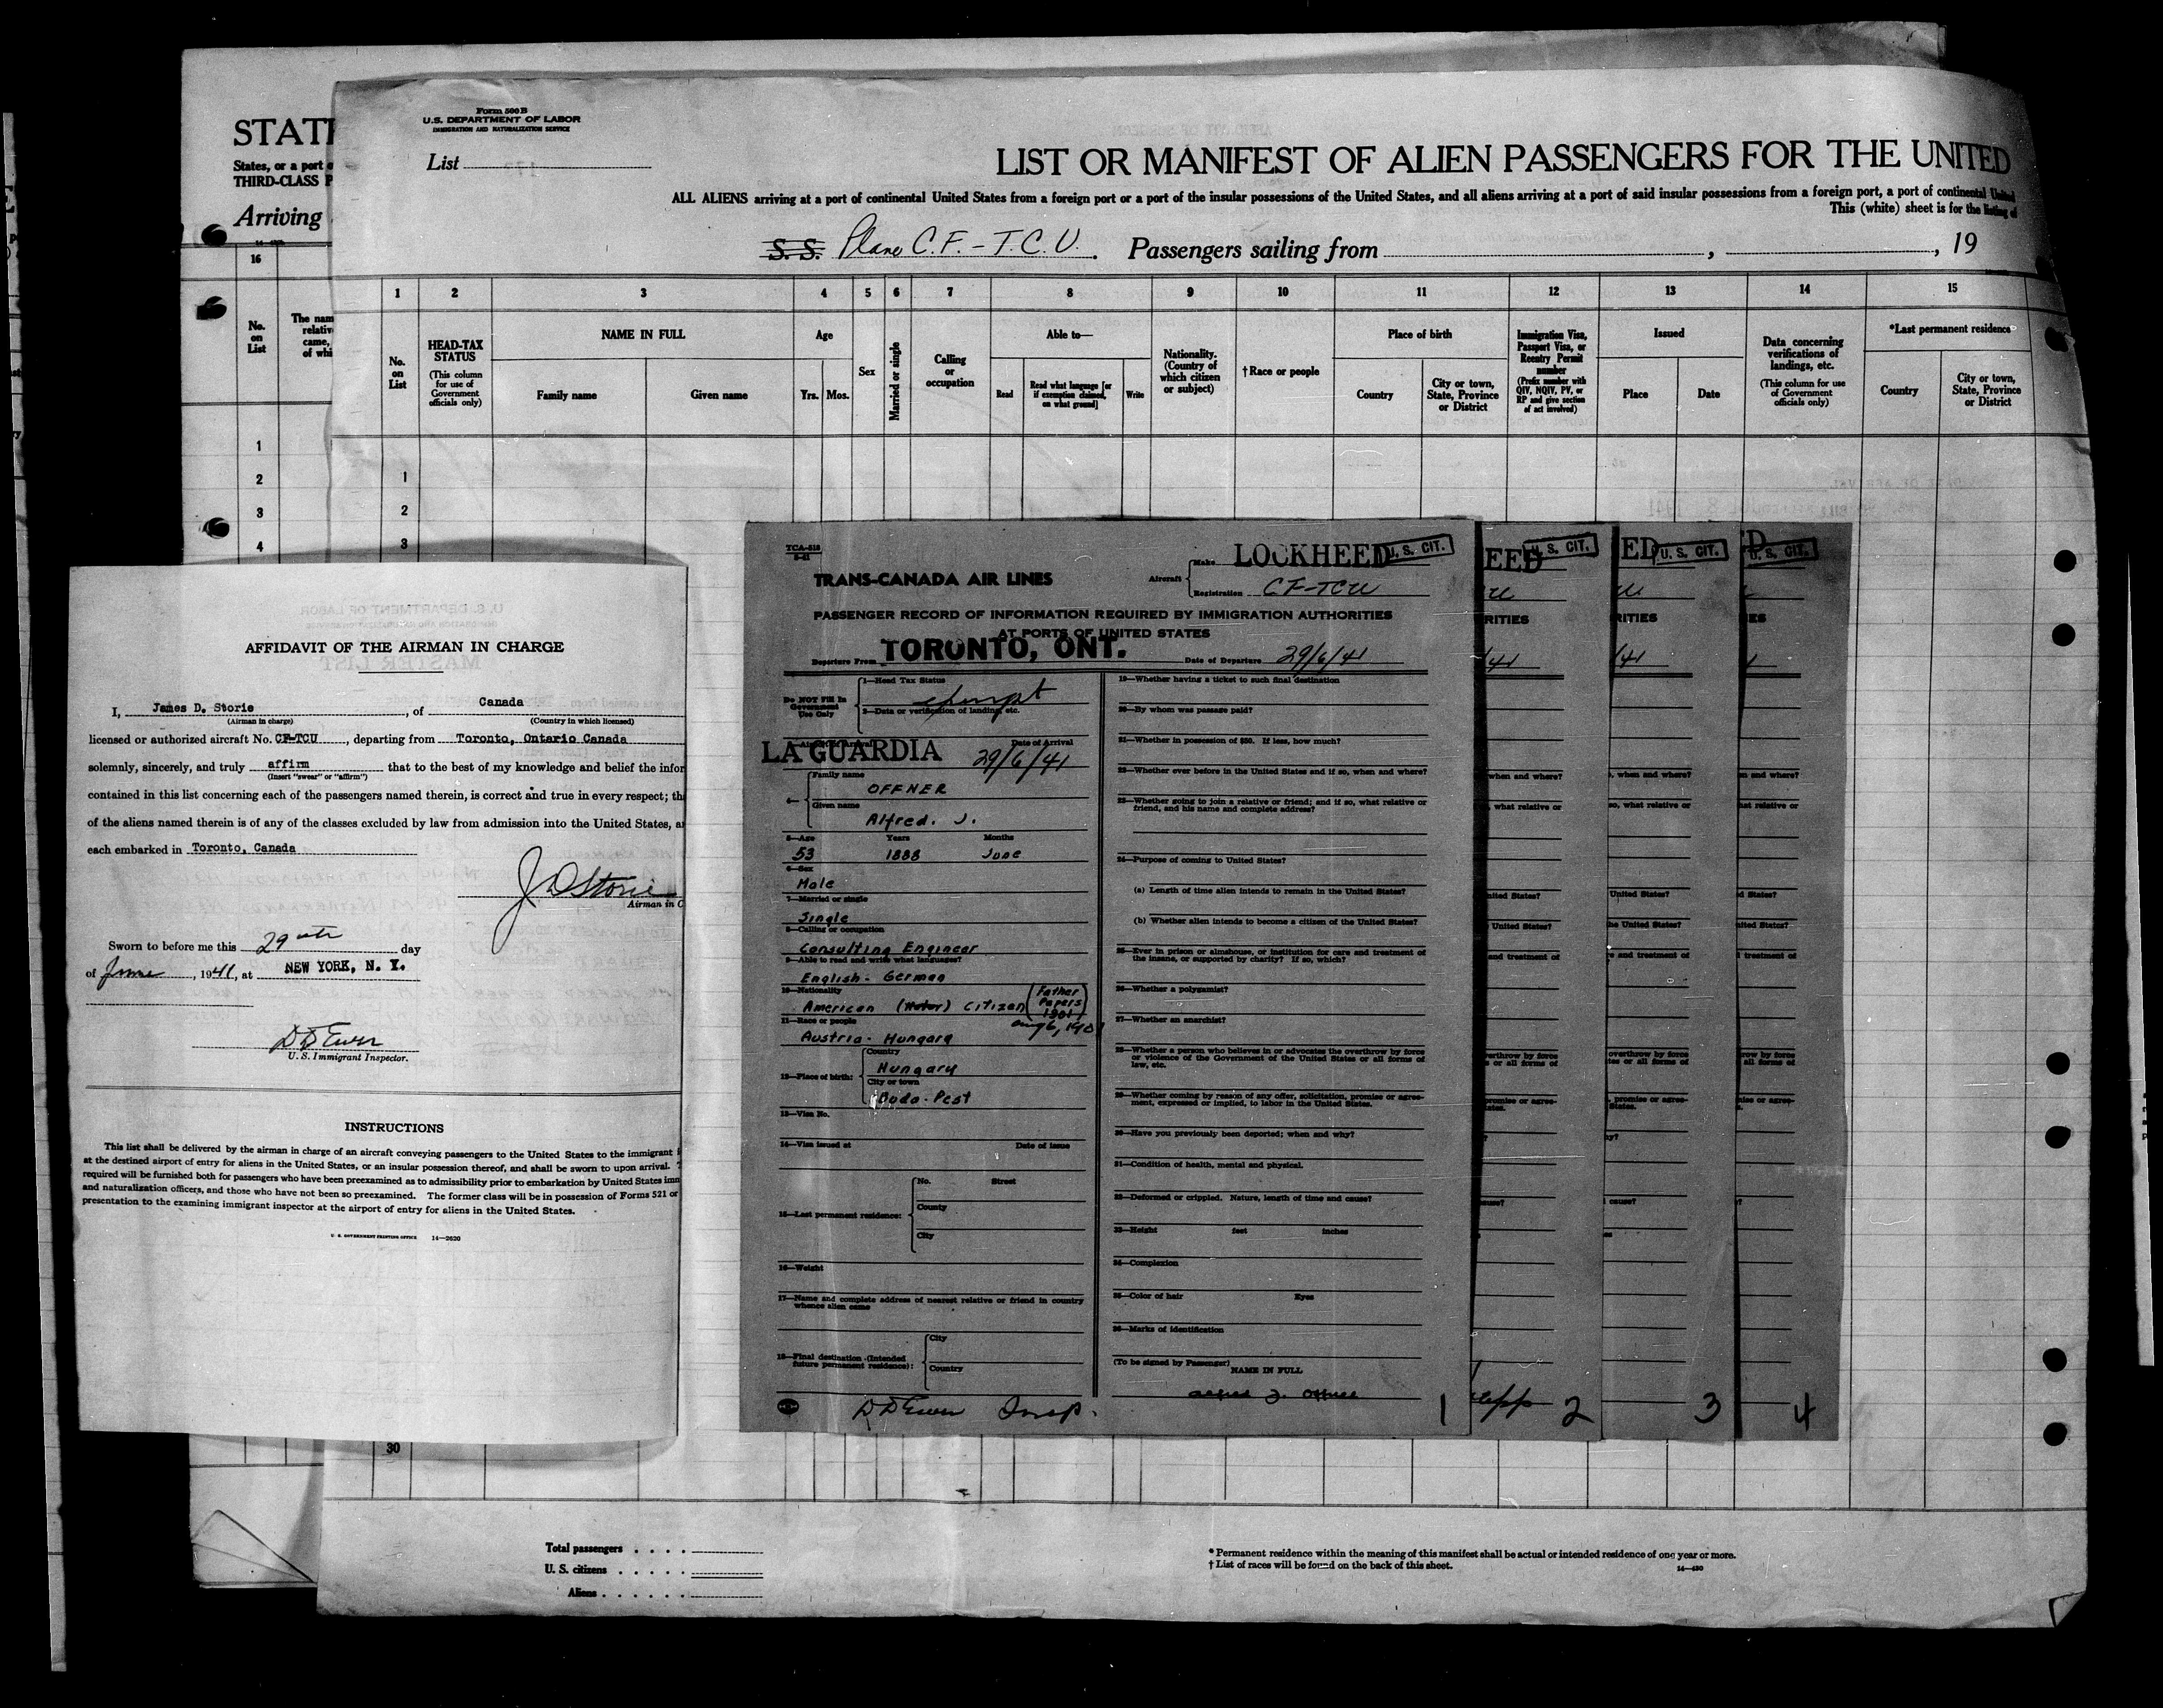 STATE
States, or a port o
THIRD-CLASS P
Arriving
16
No.
on
List
The nam
relativ
came,
of whi
1
2
3
4
Form 500 B
U.S. DEPARTMENT OF LABOR
IMMIGRATION AND NATURALIZATION SERVICE
List
LIST OR MANIFEST OF ALIEN PASSENGERS FOR THE UNITED
ALL ALIENS arriving at a port of continental United States from a foreign port or a port of the insular possessions of the United States, and all aliens arriving at a port of said insular possessions from a foreign port, a port of continental United
This (white) sheet is for the listing of
S. S. Plane C.F. - T.C.U. Passengers sailing from , , 19
1 2 3 4 5 6 7 8 9 10 11 12 13 14 15
No.
on
List
HEAD-TAX
STATUS
(This column
for use of
Government
officials only)
NAME IN FULL
Family name Given name
Age
Yrs. Mos.
Sex
Married or single
Calling
or
occupation
Able to—
Read
Read what language [or
if exemption claimed,
on what ground]
Write
Nationality.
(Country of
which citizen
or subject)
†Race or people
Place of birth
Country
City or town,
State, Province
or District
Immigration Visa,
Passport Visa, or
Reentry Permit
number
(Prefix number with
QIV, NQIV, PV, or
RP and give section
of act involved)
Issued
Place Date
Data concerning
verifications of
landings, etc.
(This column for use
of Government
officials only)
*Last permanent residence
Country
City or town,
State, Province
or District
1
2
3
30
Total passengers
U. S. citizens
Aliens
* Permanent residence within the meaning of this manifest shall be actual or intended residence of one year or more.
† List of races will be found on the back of this sheet.
14—430
AFFIDAVIT OF THE AIRMAN IN CHARGE
I, James D. Storie, of Canada
(Airman in charge) (Country in which licensed)
licensed or authorized aircraft No. CF-TCU, departing from Toronto, Ontario Canada
solemnly, sincerely, and truly affirm that to the best of my knowledge and belief the infor
(Insert "swear" or "affirm")
contained in this list concerning each of the passengers named therein, is correct and true in every respect; tha
of the aliens named therein is of any of the classes excluded by law from admission into the United States, an
each embarked in Toronto, Canada
J D Storie
Airman in C
Sworn to before me this 29th day
of June, 1941, at NEW YORK, N. Y.
D D Ewen
U. S. Immigrant Inspector.
INSTRUCTIONS
This list shall be delivered by the airman in charge of an aircraft conveying passengers to the United States to the immigrant i
at the destined airport of entry for aliens in the United States, or an insular possession thereof, and shall be sworn to upon arrival. T
required will be furnished both for passengers who have been preexamined as to admissibility prior to embarkation by United States imm
and naturalization officers, and those who have not been so preexamined. The former class will be in possession of Forms 521 or
presentation to the examining immigrant inspector at the airport of entry for aliens in the United States.
U. S. GOVERNMENT PRINTING OFFICE 14—2620
TCA-518
TRANS-CANADA AIR LINES
Aircraft
Make LOCKHEED
U. S. CIT.
Registration CF-TCU
PASSENGER RECORD OF INFORMATION REQUIRED BY IMMIGRATION AUTHORITIES
AT PORTS OF UNITED STATES
Departure From TORONTO, ONT. Date of Departure 29/6/41
Do NOT Fill In
Government
Use Only
1—Head Tax Status
exempt
2—Data or verification of landing, etc.
LA GUARDIA
Date of Arrival
29/6/41
4—
Family name
OFFNER
Given name
Alfred. J.
5—Age Years Months
53 1888 June
6—Sex
Male
7—Married or single
Single
8—Calling or occupation
Consulting Engineer
9—Able to read and write what languages?
English - German
10—Nationality
American (Natur) Citizen (Father Papers 1901)
Aug 6, 1901
11—Race or people
Austria - Hungary
12—Place of birth:
Country
Hungary
City or town
Buda-Pest
13—Visa No.
14—Visa issued at Date of issue
15—Last permanent residence:
No. Street
County
City
16—Weight
17—Name and complete address of nearest relative or friend in country
whence alien came
18—Final destination (Intended
future permanent residence):
City
Country
D D Ewen Insp.
19—Whether having a ticket to such final destination
20—By whom was passage paid?
21—Whether in possession of $50. If less, how much?
22—Whether ever before in the United States and if so, when and where?
23—Whether going to join a relative or friend; and if so, what relative or
friend, and his name and complete address?
24—Purpose of coming to United States?
(a) Length of time alien intends to remain in the United States?
(b) Whether alien intends to become a citizen of the United States?
25—Ever in prison or almshouse, or institution for care and treatment of
the insane, or supported by charity? If so, which?
26—Whether a polygamist?
27—Whether an anarchist?
28—Whether a person who believes in or advocates the overthrow by force
or violence of the Government of the United States or all forms of
law, etc.
29—Whether coming by reason of any offer, solicitation, promise or agree-
ment, expressed or implied, to labor in the United States.
30—Have you previously been deported; when and why?
31—Condition of health, mental and physical.
32—Deformed or crippled. Nature, length of time and cause?
33—Height feet inches
34—Complexion
35—Color of hair Eyes
36—Marks of identification
(To be signed by Passenger)
NAME IN FULL
Alfred J. Offner
1
EED
U. S. CIT.
RITIES
/41
when and where?
, what relative or
nited States?
United States?
and treatment of
erthrow by force
s or all forms of
promise or agree-
ates.
ause?
2
ED
U. S. CIT.
RITIES
/41
, when and where?
so, what relative or
United States?
he United States?
e and treatment of
overthrow by force
tes or all forms of
, promise or agree-
States.
hy?
l cause?
3
D
U. S. CIT.
IES
n and where?
hat relative or
d States?
nited States?
l treatment of
row by force
all forms of
mise or agree-
s.
4